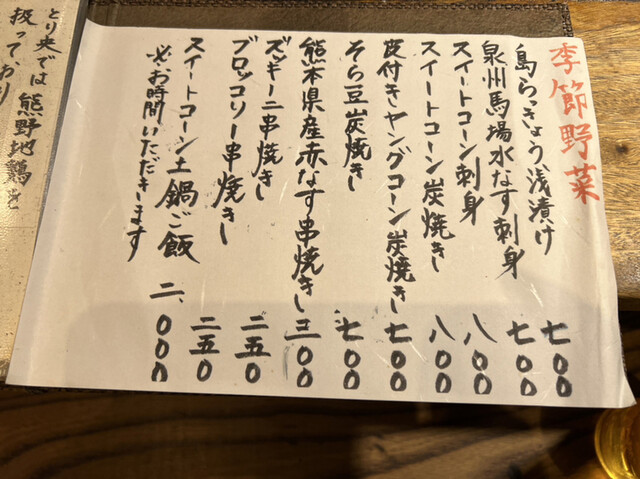 季節野菜
島らっきょう浅漬け 七〇〇
泉州馬場水なす刺身 七〇〇
スイートコーン刺身 八〇〇
スイートコーン炭焼き 八〇〇
皮付きヤングコーン炭焼き 七〇〇
そら豆炭焼き 七〇〇
熊本県産赤なす串焼き 三〇〇
ズッキーニ串焼き 二五〇
ブロッコリー串焼き 二五〇
スイートコーン土鍋ご飯 二、〇〇〇
※お時間いただきます
とり央では熊野地鶏を
扱っており